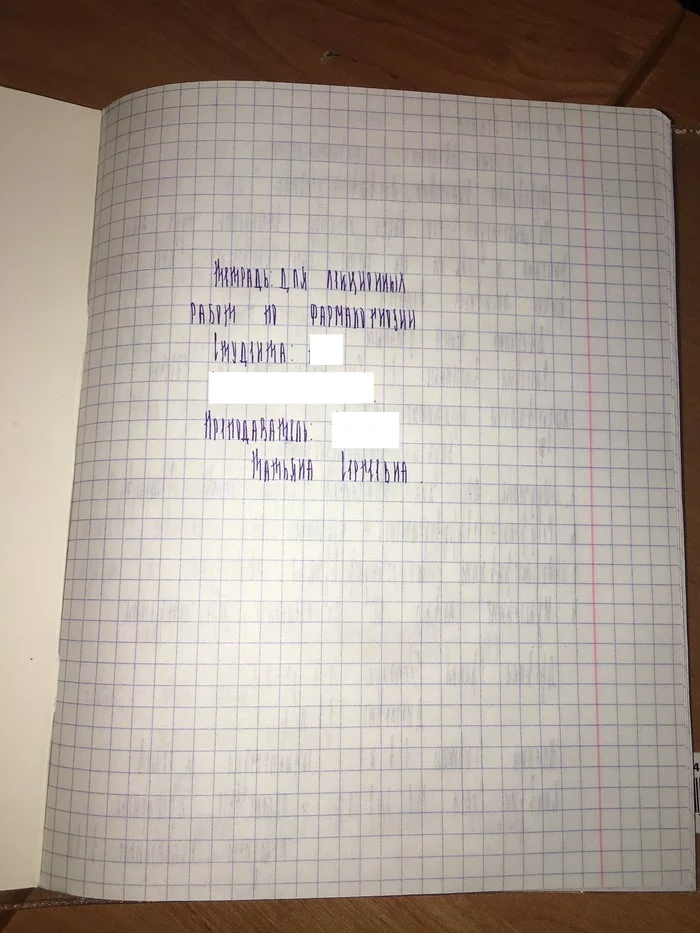 Тетрадь для лекционных
работ по фармакогнозии
Студента:
Преподаватель:
Татьяна Сергеевна.